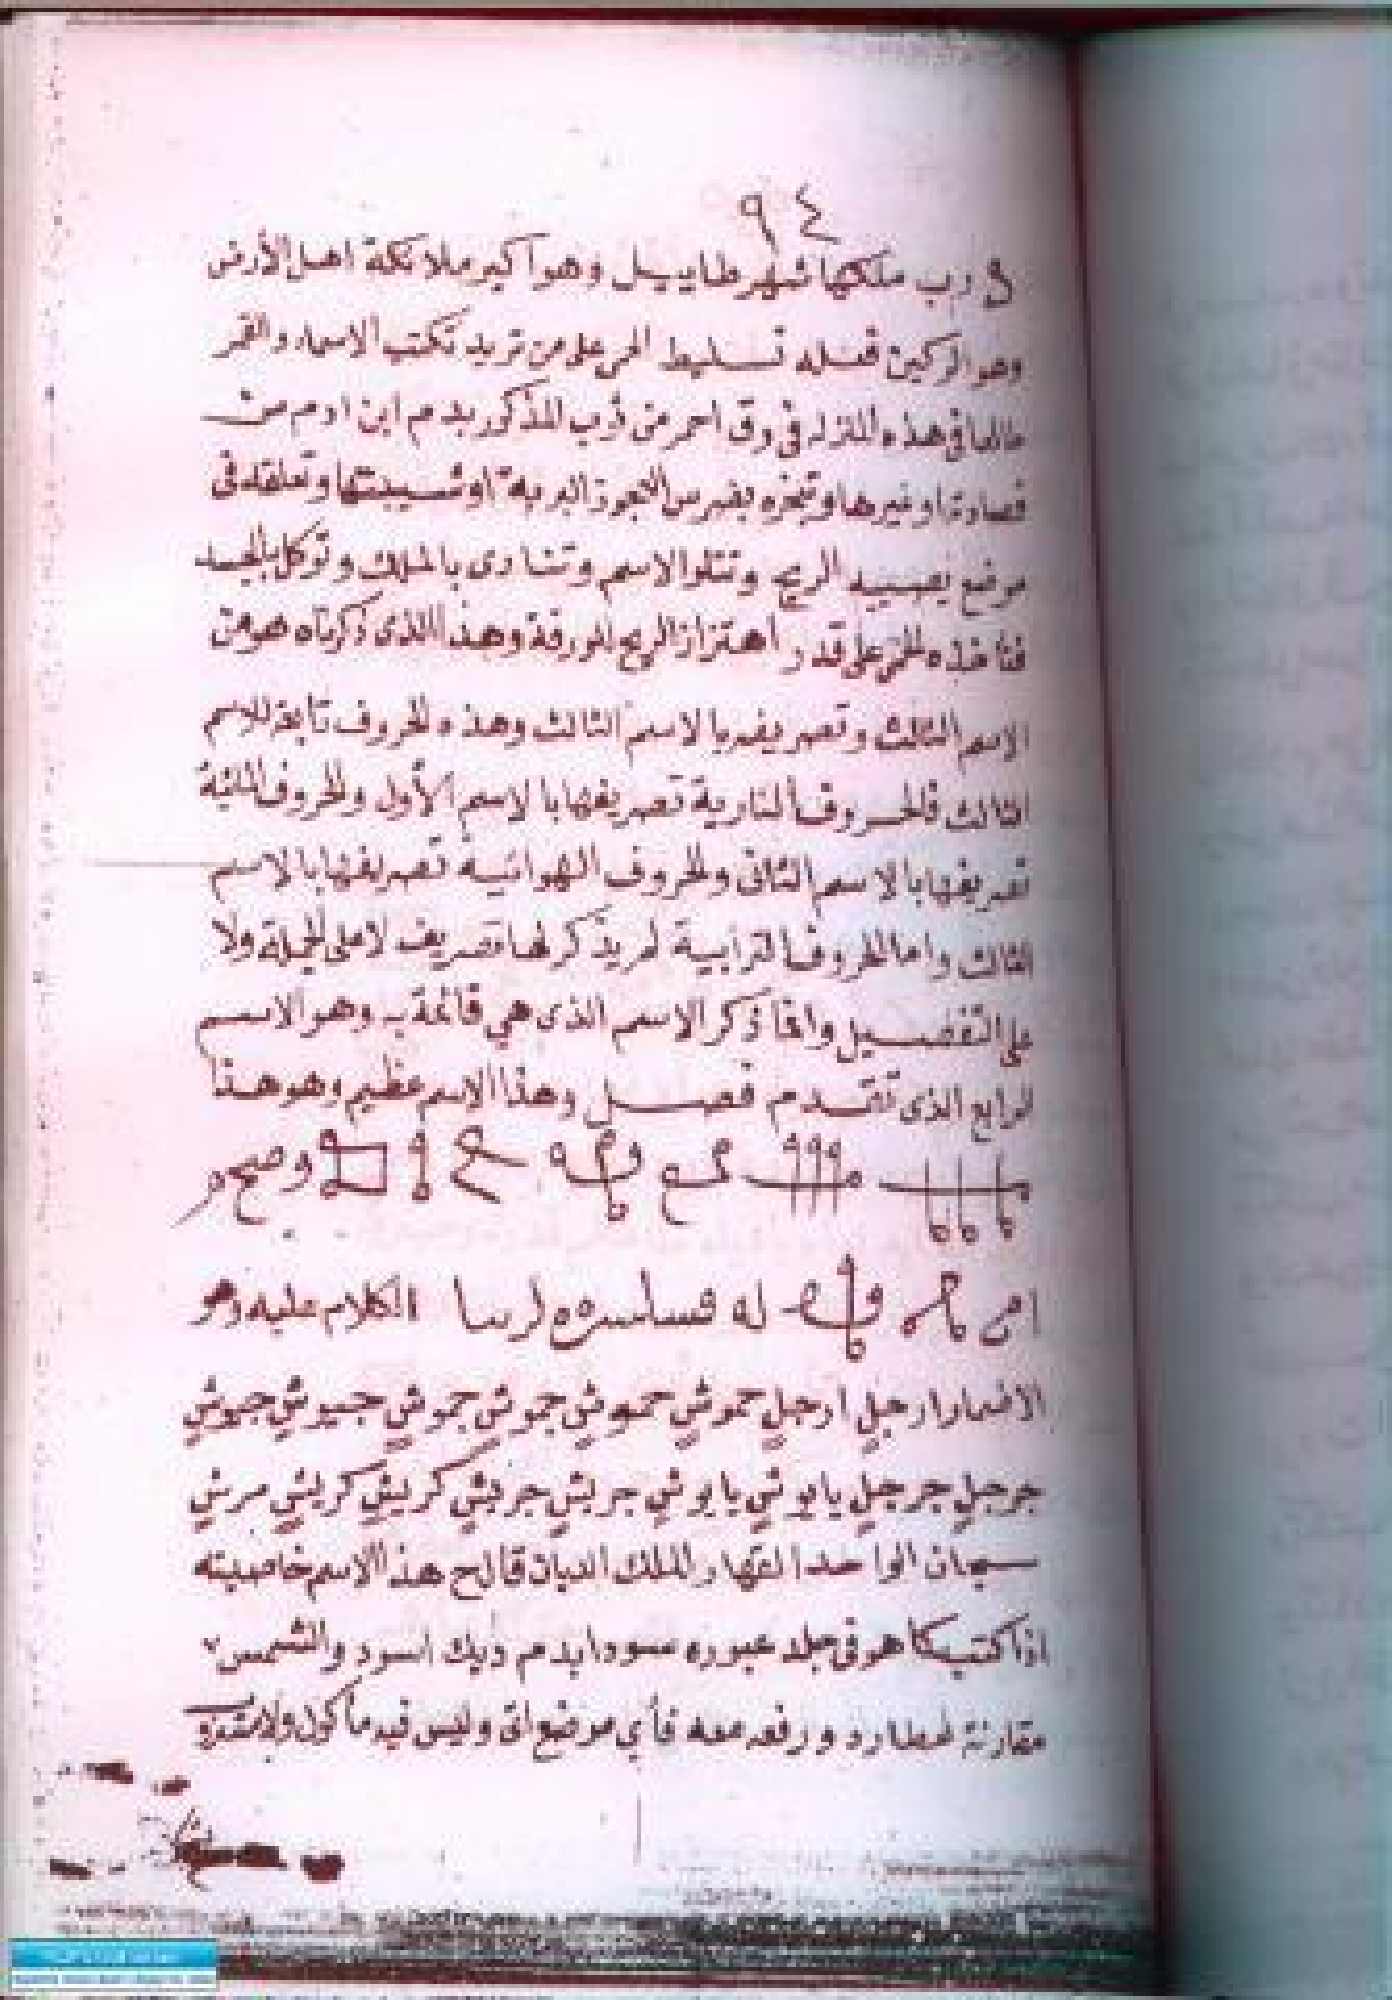 ٩٤
وهو أكبر ملائكة اهل الأرض
تسليط الحمى على من تريد تكتب الاسماء والقمر
هذه المنزلة في ورق احمر من ثوب المذكور بدم ابن ادم من
او غيرها وتبخره بضرس العجوز او شيبتها وتعلقه فى
موضع يصيبه الريح وتتلوا الاسم وتنادى بالملك وتوكل بالجسد
فتاخذه الحمى على قدر اهتزاز الريح للورقة وهذا الذى ذكرناه هو من
الاسم الثالث وتصريفه بالاسم الثالث وهذه الحروف تابعة للاسم
الثالث فالحروف النارية تصريفها بالاسم الأول والحروف المائية
تصريفها بالاسم الثانى والحروف الهوائية تصريفها بالاسم
الثالث واما الحروف الترابية لم يذكر لها تصريف لا على الجملة ولا
على التفصيل وانما ذكر الاسم الذى هي قائمة به وهو الاسم
الرابع الذى تقدم فصل وهذا الاسم عظيم وهو هذا
الكلام عليه وهو
ارجل ارجل حموش حموش جموش جموش جيوش جيوش
جرجل جرجل يايوش يايوش جريش جريش كريش كريش مرش
سبحان الواحد القهار الملك الديان قال ح هذا الاسم خاصيته
اذا كتب كما هو فى جلد سودا بدم ديك اسود والشمس
مقارنة لعطارد ورفعه معه فأي موضع اتى وليس فيه مأكول ولا